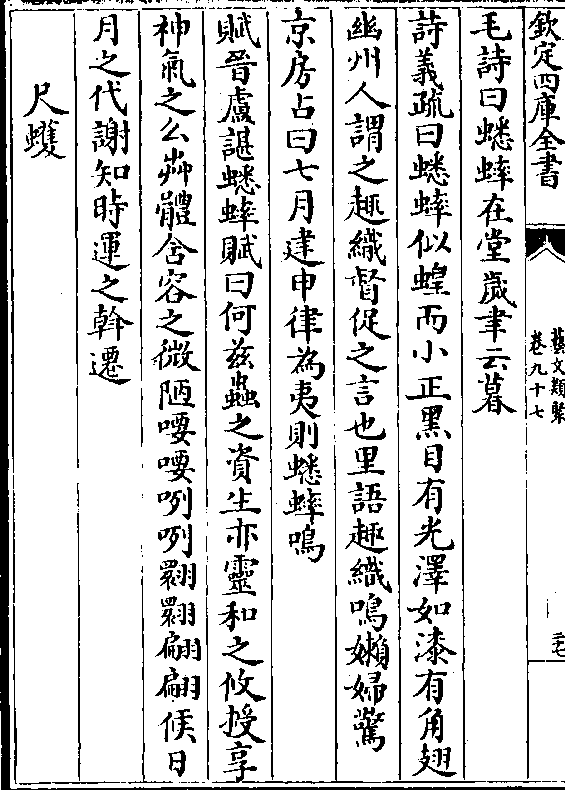 欽定四庫全書
藝文類聚
卷九十七
三七
毛詩曰蟋蟀在堂歲聿云暮
詩義疏曰蟋蟀似蝗而小正黑目有光澤如漆有角翅
幽州人謂之趣織督促之言也里語趣織鳴嬾婦驚
京房占曰七月建申律為夷則蟋蟀鳴
賦晉盧諶蟋蟀賦曰何茲蟲之資生亦靈和之攸授享
神氣之么茻體含容之微陋嘤嘤咧咧翾翾翩翩俟日
月之代謝知時運之斡遷
尺蠖